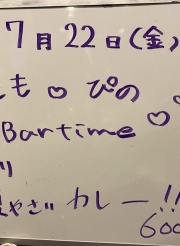 7月22日(金)
も♡ぴの
Bartime ♡♡
り
やさい カレー!!
600